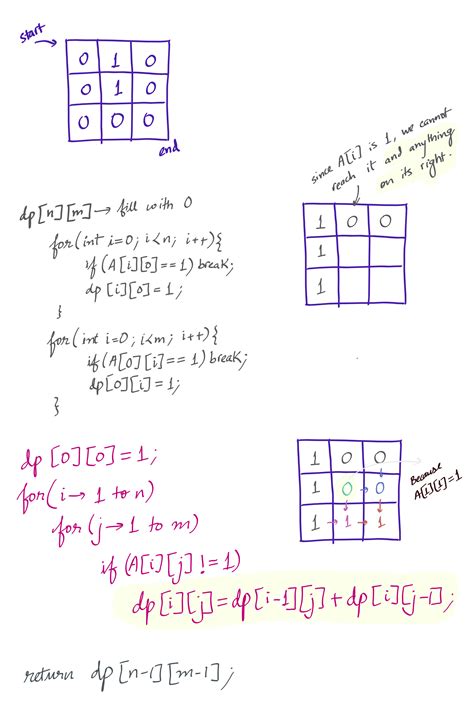 start
0 1 0
0 1 0
0 0 0
end
since A[i] is 1, we cannot
reach it and anything
on its right.
1 0 0
1
1
dp[n][m] → fill with 0
for(int i=0; i<n; i++){
if (A[i][0]==1) break;
dp[i][0]=1;
}
for(int i=0; i<m; i++){
if(A[0][i]==1) break;
dp[0][i]=1;
}
dp[0][0]=1;
for(i→1 to n)
for(j→1 to m)
if(A[i][j]!=1)
dp[i][j]=dp[i-1][j]+dp[i][j-1];
1 0 0
1 0 → 0
1 → 1 → 1
Because
A[i][i]=1
return dp[n-1][m-1];